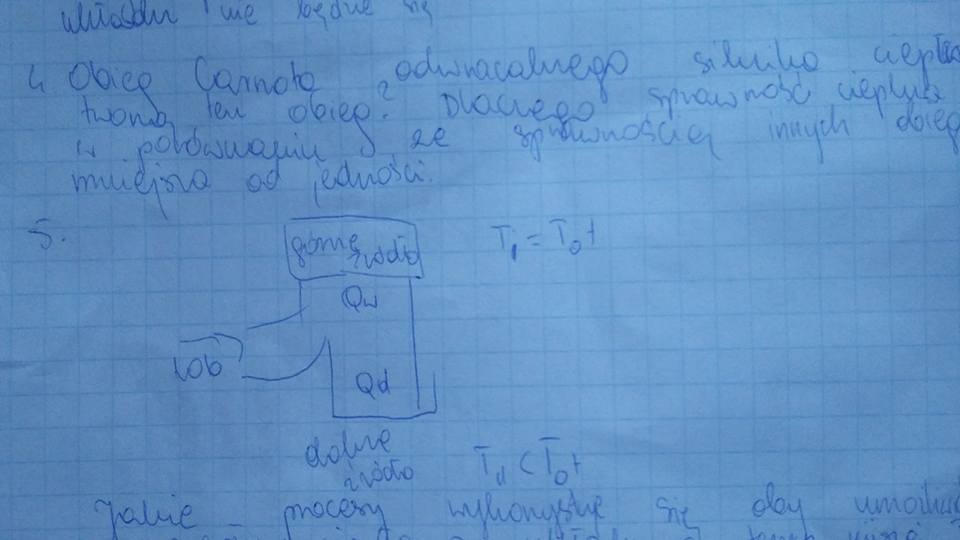 nie będzie się
4 Obieg Carnota odwracalnego silnika
tworzą ten obieg? Dlaczego sprawność
w porównaniu ze sprawnością innych obieg
mniejsza od jedności.
5.
górne źródło T₁ = T₀t
Qw
Lob
Qd
dolne źródło T₁₁ < T₀t
Jakie procesy wykorzystuje się aby umożliw